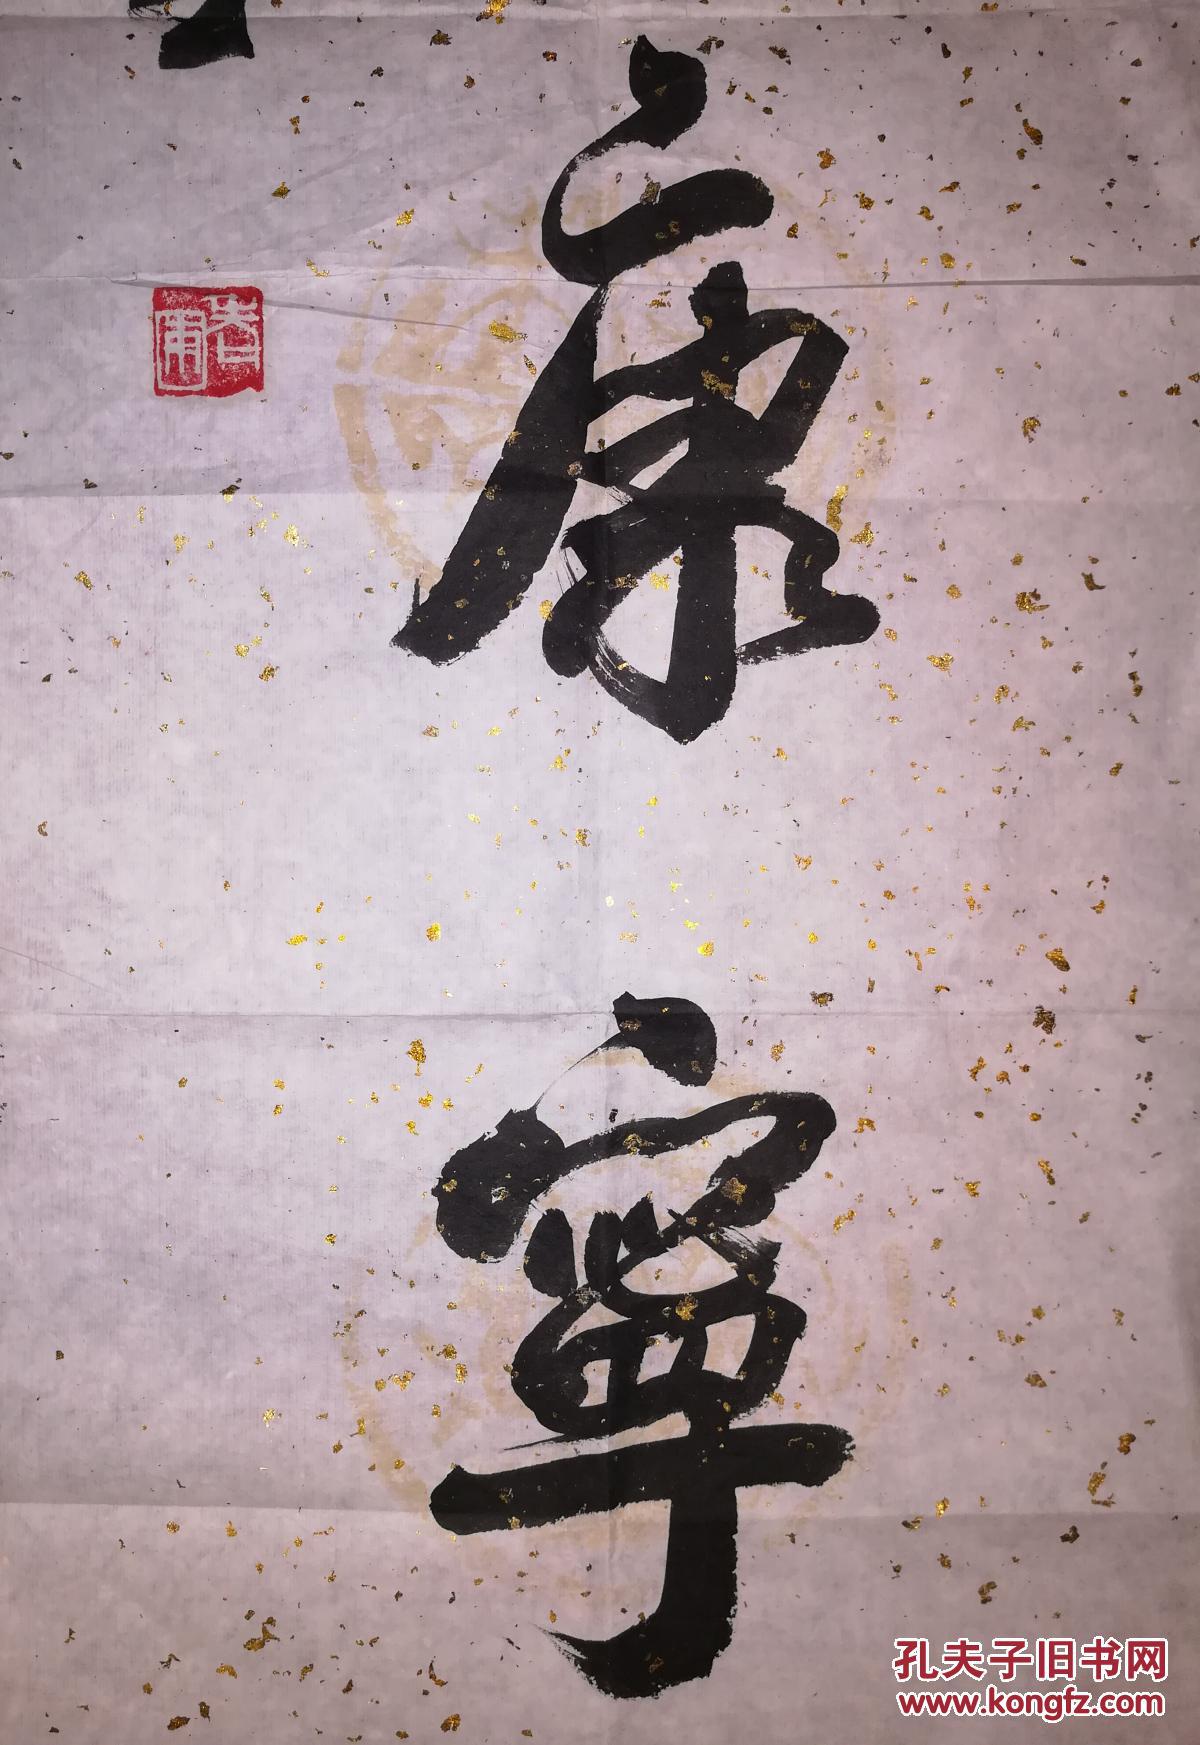 康
寧
孔夫子旧书网
www.kongfz.com